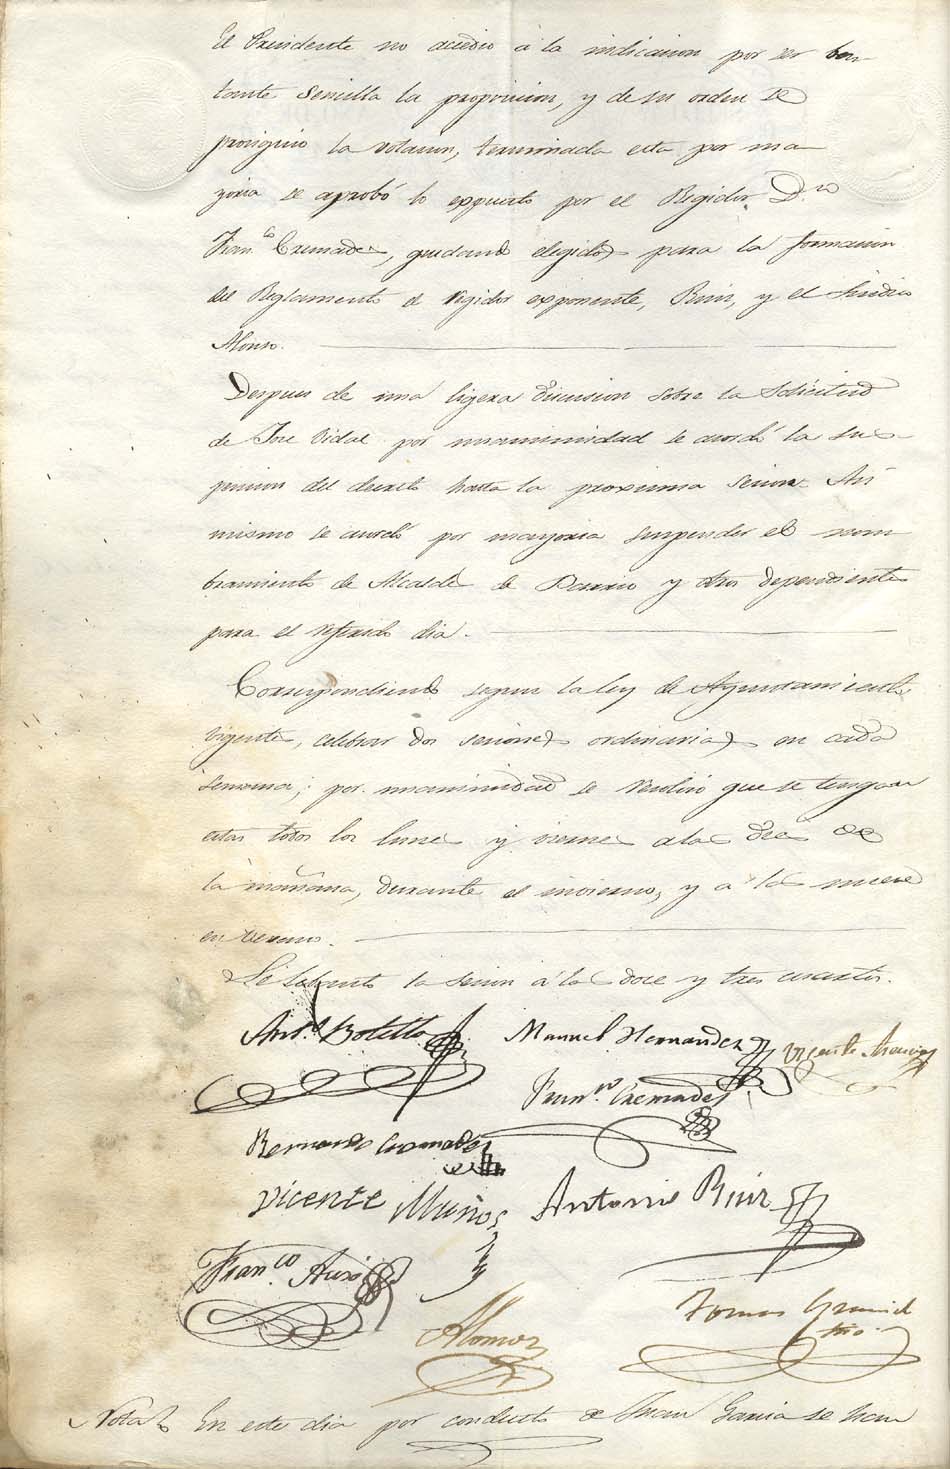 El Presidente no acedio á la indicacion por ser bas-
tante sencilla la proposicion, y de su orden se
prosiguio la votacion, terminada esta por ma
yoria se aprobó lo expuesto por el Regidor Dn
Franco Cremades, quedando elegidos para la formacion
del Reglamento el Regidor exponente, Ruiz, y el Sindico
Alonso.
Despues de una ligera discusion sobre la Solicitud
de Jose Vidal por unanimidad se acordó la sus-
pension del decreto hasta la proxima sesion. Asi
mismo se acordó por mayoria suspender el nom
bramiento de Alcaldes de Barrio y otros dependientes
para el referido dia.
Correspondiendo segun la ley de Ayuntamientos
vigente, celebrar dos sesiones ordinarias en cada
semana; por unanimidad se resolvio que se tengan
estas todos los lunes y viernes a las diez de
la mañana, durante el invierno, y a las nueve
en verano.
Se levantó la sesion á las doce y tres cuartos.
Anto Botella
Manuel Hernandez
Vicente
Franco Cremades
Bernardo Cremades
Vicente Muños
Antonio Ruiz
Franco
Alonso
Tomas
Srio.
Nota En este dia por conducto de Juan Garcia se han